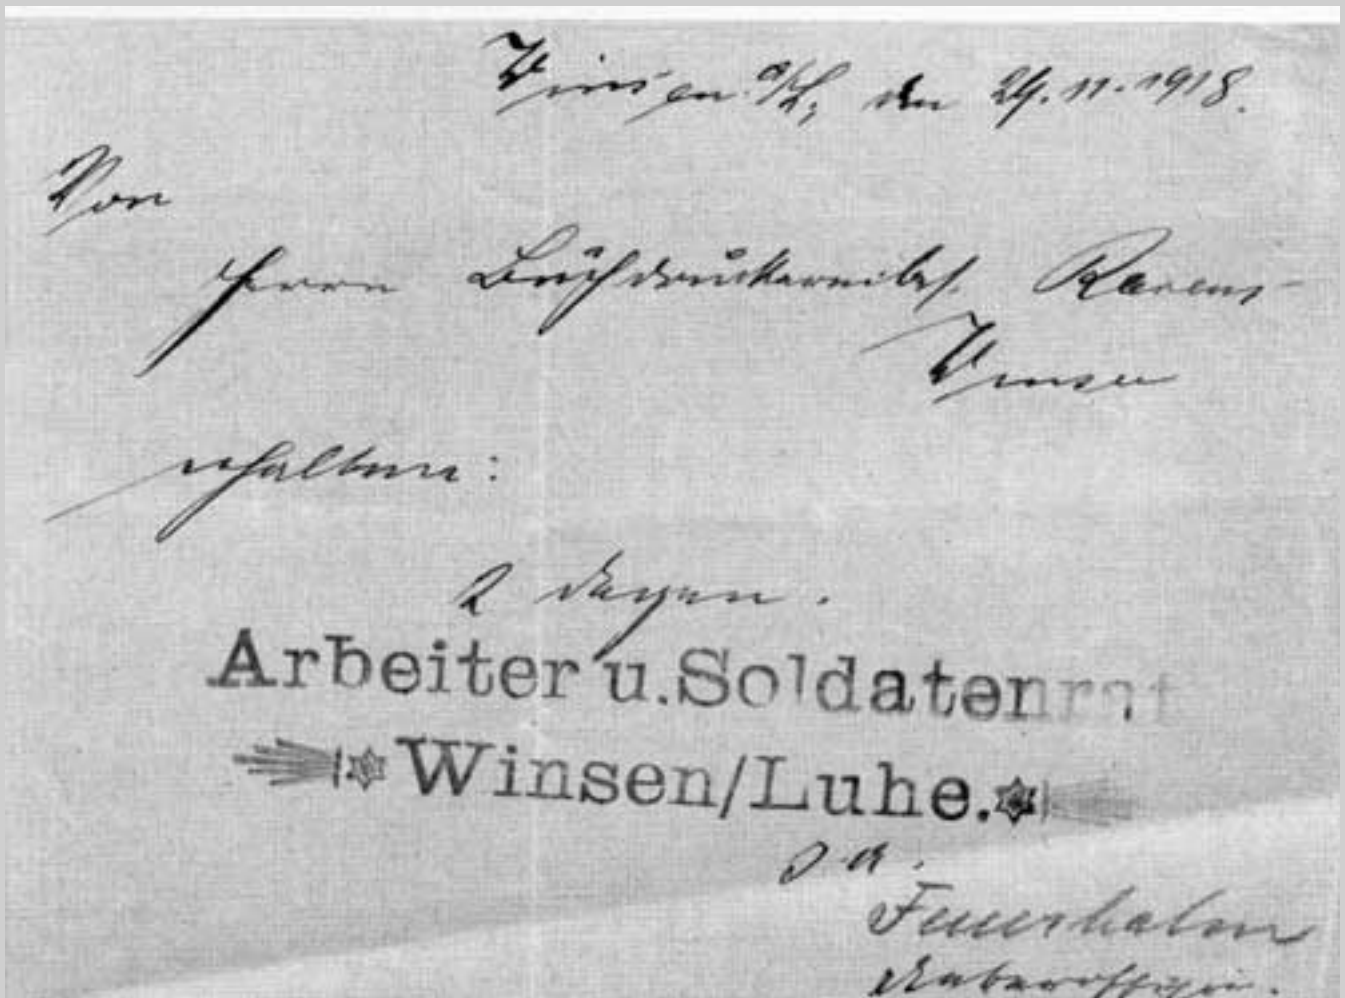 Winsen a/L, den 29.11.1918.
Von
Herrn Buchdruckereibes. Ravens
Winsen
erhalten:
2 Degen.
Arbeiter u. Soldatenrat
Winsen/Luhe.
I. A.
Unteroffizier.